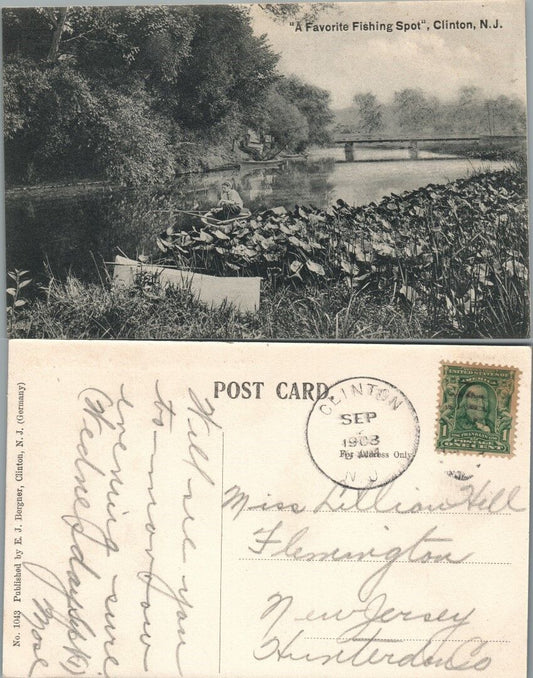 "A Favorite Fishing Spot", Clinton, N.J.
No. 1043 Published by E. J. Bergner, Clinton, N. J. (Germany)
POST CARD.
For Address Only
CLINTON
SEP
1908
N.J.
Will see you
to-morrow
evening sure.
(Wednesday
Miss Lillian Hill
Flemington
New Jersey
Hunterdon Co